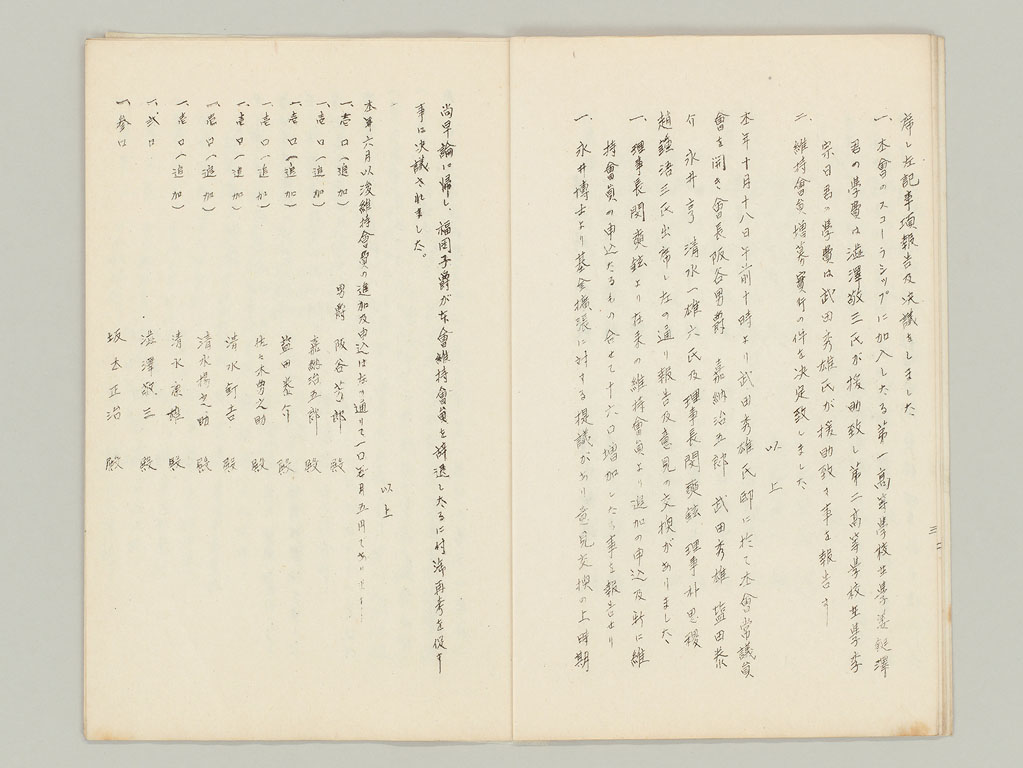 席し左記事項報告及決議をしました
一、本會のスコーラシップに加入したる第一高等學校在學姜鋌澤
君の學費は澁澤敬三氏が援助致し第二高等學校在學李
宗日君の學費は武田秀雄氏が援助致す事を報告す
二、維持會員増募實行の件を決定致しました
以上
本年十月十八日午前十時より武田秀雄氏邸に於て本會常議員
會を開き會長阪谷男爵 嘉納治五郎 武田秀雄 塩田泰
介 永井亨 清水一雄六氏及理事長閔奭鉉 理事朴思稷
趙鍾浩三氏出席し左の通り報告及意見の交換がありました
一、理事長閔奭鉉より在来の維持會員より追加の申込及新に維
持會員の申込たるもの合せて十六口増加したる事を報告せり
一、永井博士より基金擴張に對する提議があり意見交換の上時期
三二
尚早論に帰し、福岡子爵が本會維持會員を辞退したるに付深再考を促す
事に決議されました。
以上
本年六月以後維持會費の追加及申込は左の通りで一口各月五円であります
一、壱口(追加) 男爵 阪谷芳郎 殿
一、壱口(追加) 嘉納治五郎 殿
一、壱口(追加) 塩田泰介 殿
一、壱口(追加) 佐々木勇之助 殿
一、壱口(追加) 清水釘吉 殿
一、壱口(追加) 清水揚之助 殿
一、壱口(追加) 清水康雄 殿
一、弐口 澁澤敬三 殿
一、参口 坂本正治 殿